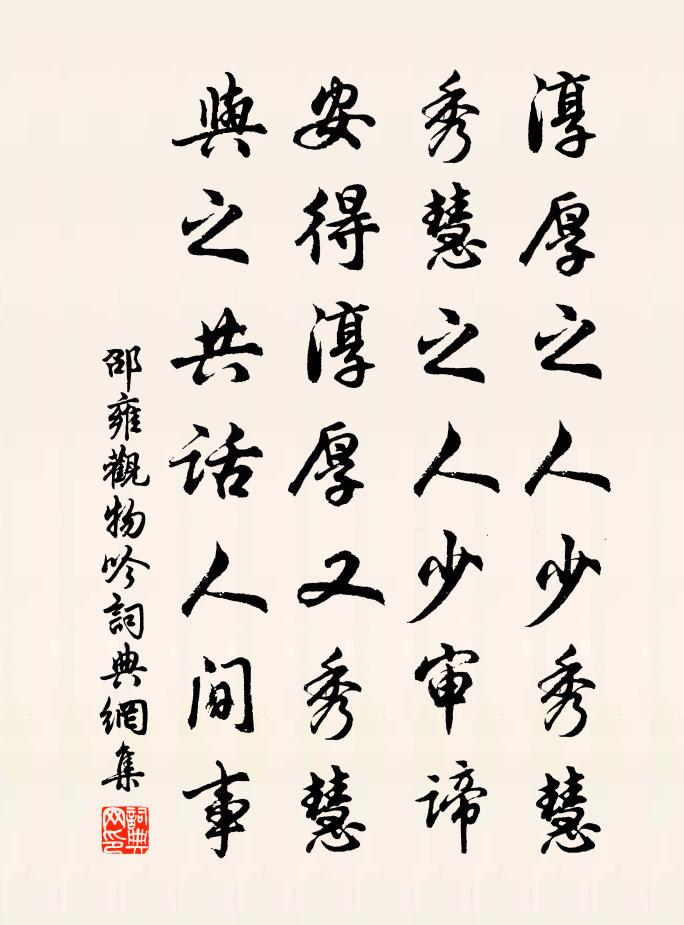 淳厚之人少秀慧
秀慧之人少审諦
安得淳厚又秀慧
與之共話人間事
邵雍觀物吟詞典網集
詞典
网印